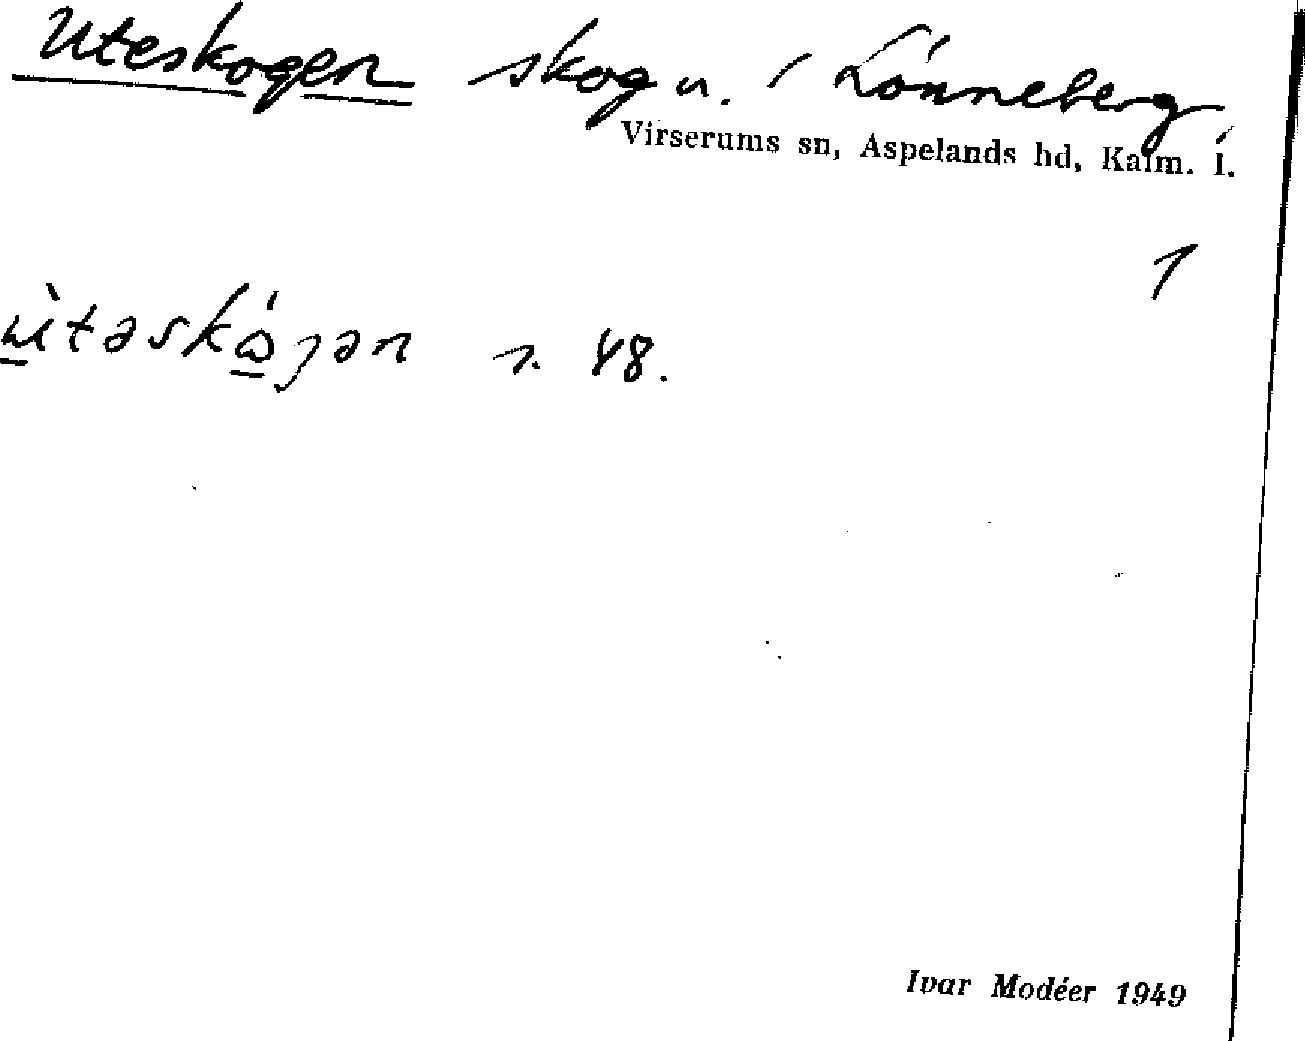 Uteskogen skog u. / Lönneberg
Virserums sn, Aspelands hd, Kalm. l.
1
ùtəskóʒən s. 48.
Ivar Modéer 1949